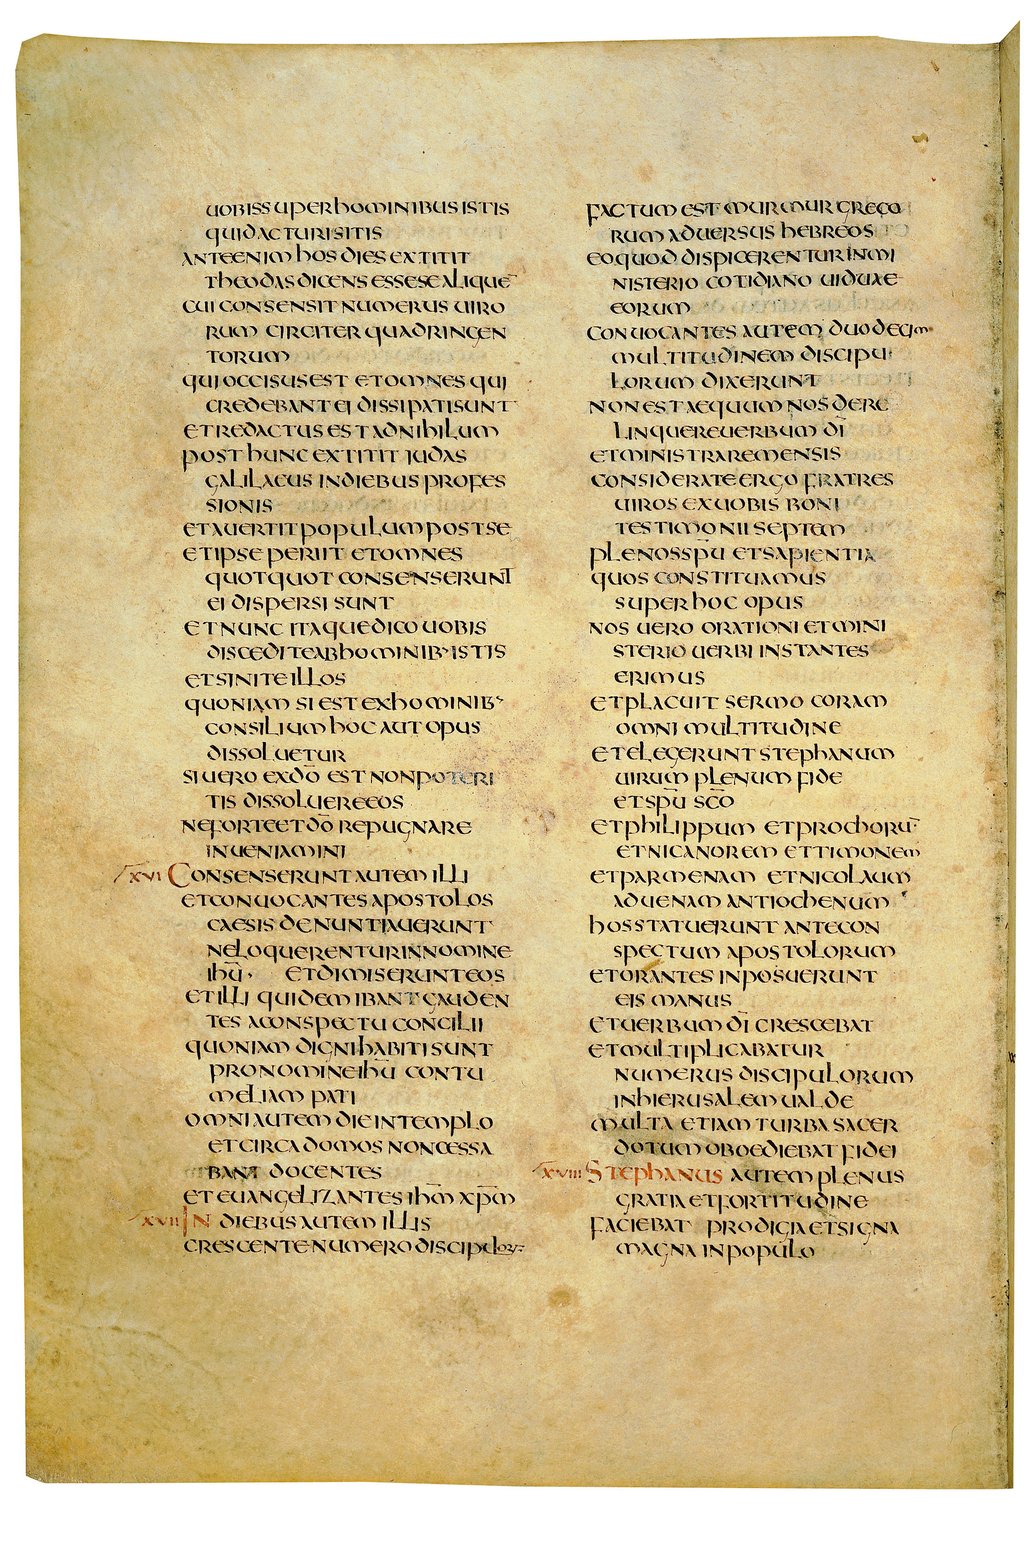 uobis super hominibus istis
quid acturi sitis
ante enim hos dies extitit
theodas dicens esse se alique̅
cui consensit numerus uiro
rum circiter quadringen
torum
qui occisus est et omnes qui
credebant ei dissipati sunt
et redactus est ad nihilum
post hunc extitit iudas
galilaeus in diebus profes
sionis
et auertit populum post se
et ipse periit et omnes
quotquot consenserunt
ei dispersi sunt
et nunc itaque dico uobis
discedite ab hominib· istis
et sinite illos
quoniam si est ex hominib·
consilium hoc aut opus
dissoluetur
si uero ex do̅ est non poteri
tis dissoluere eos
ne forte et do̅ repugnare
inueniamini
xvi Consenserunt autem illi
et conuocantes apostolos
caesis denuntiauerunt
ne loquerentur in nomine
ihu̅ · et dimiserunt eos
et illi quidem ibant gauden
tes a conspectu concilii
quoniam digni habiti sunt
pro nomine ihu̅ contu
meliam pati
omni autem die in templo
et circa domos non cessa
bant docentes
et euangelizantes ihm̅ xpm̅
xvii In diebus autem illis
crescente numero discipulor·
factum est murmur greco
rum aduersus hebreos
eo quod dispicerentur in mi
nisterio cotidiano uiduae
eorum
conuocantes autem duodecim
multitudinem discipu
lorum dixerunt
non est aequum nos dere
linquere uerbum di̅
et ministrare mensis
considerate ergo fratres
uiros ex uobis boni
testimonii septem
plenos spu̅ et sapientia
quos constituamus
super hoc opus
nos uero orationi et mini
sterio uerbi instantes
erimus
et placuit sermo coram
omni multitudine
et elegerunt stephanum
uirum plenum fide
et spu̅ sco̅
et philippum et prochoru̅
et nicanorem et timonem
et parmenam et nicolaum
aduenam antiochenum
hos statuerunt ante con
spectum apostolorum
et orantes inposuerunt
eis manus
et uerbum di̅ crescebat
et multiplicabatur
numerus discipulorum
in hierusalem ualde
multa etiam turba sacer
dotum oboediebat fidei
xviii Stephanus autem plenus
gratia et fortitudine
faciebat prodigia et signa
magna in populo